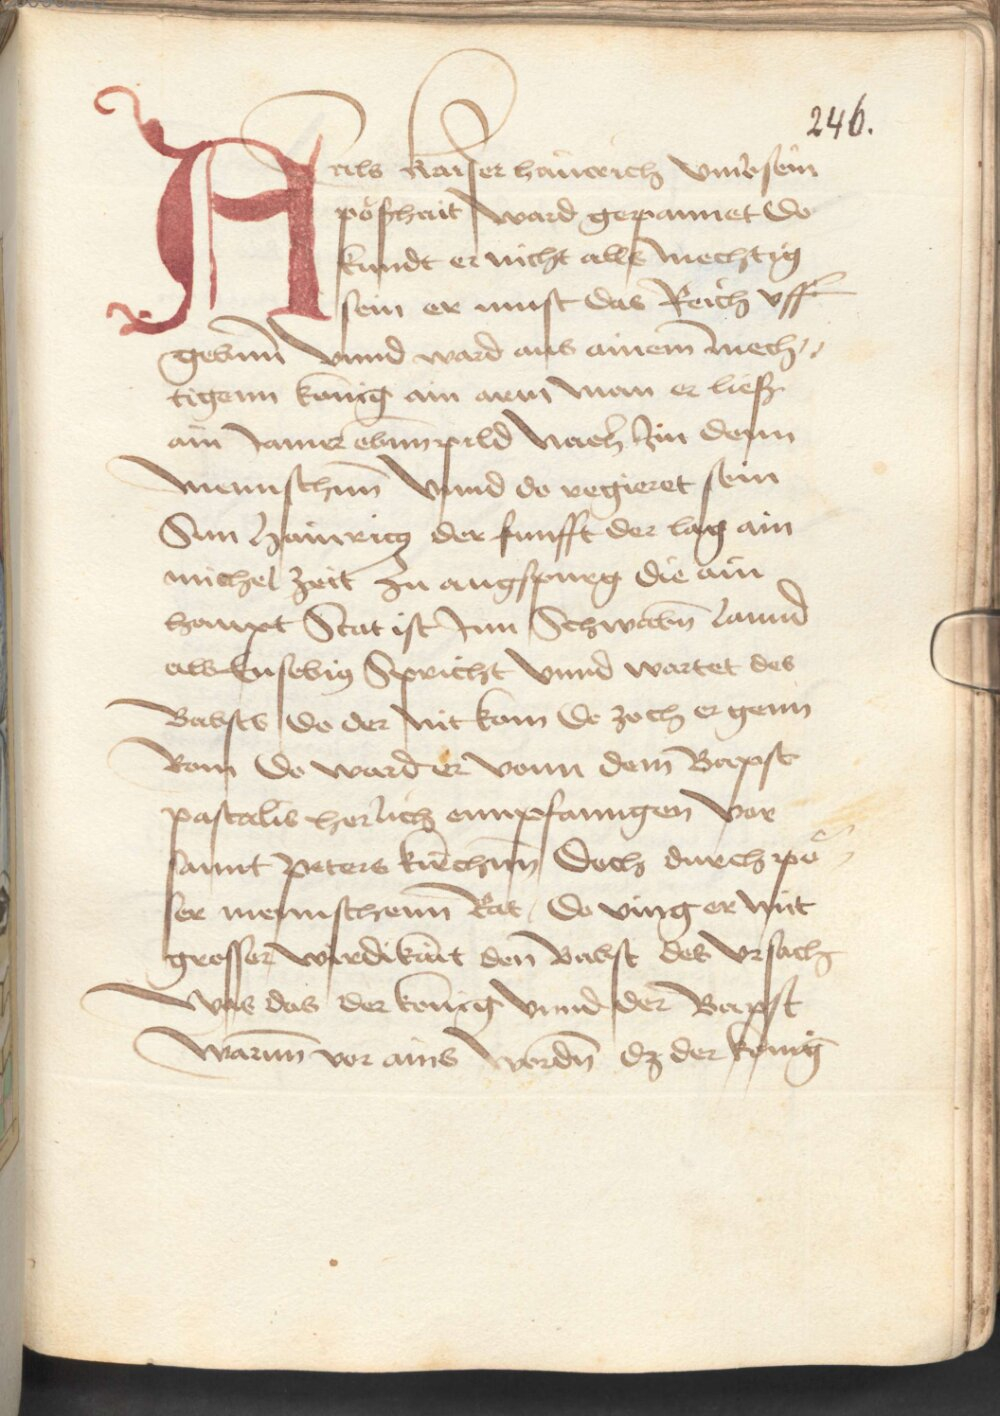 246.
Als Kaiser hainrich vmb sein
pößhait ward gepannet Do
kundt er nicht alls mechtig
sein er must das Reich vff
gebnn vnnd ward aus ainem mech„
tigenn konig ain arm man er ließ
ain Jamer ebnnpild nach Jn denn
mennschnn vnnd do regieret sein
Sun Hainricg der funfft der lag ain
michel zeit zu augspurg die ain
haupt Stat ist Jnn Schwabn lannd
als Eusebig Spricht vnnd wartet des
Babsts do der nit kam do zoch er genn
Rom do ward er vonn dem Bapst
pascalis herlich ennpfanngen vor
sannt peters kirchnn Doch durch pö„
ser mennschenn Rat do ving er mit
grosser wirdikait den Babst des vrsach
Was das der konig vnnd der Bapst
Warnn vor ains wordn dz der konig